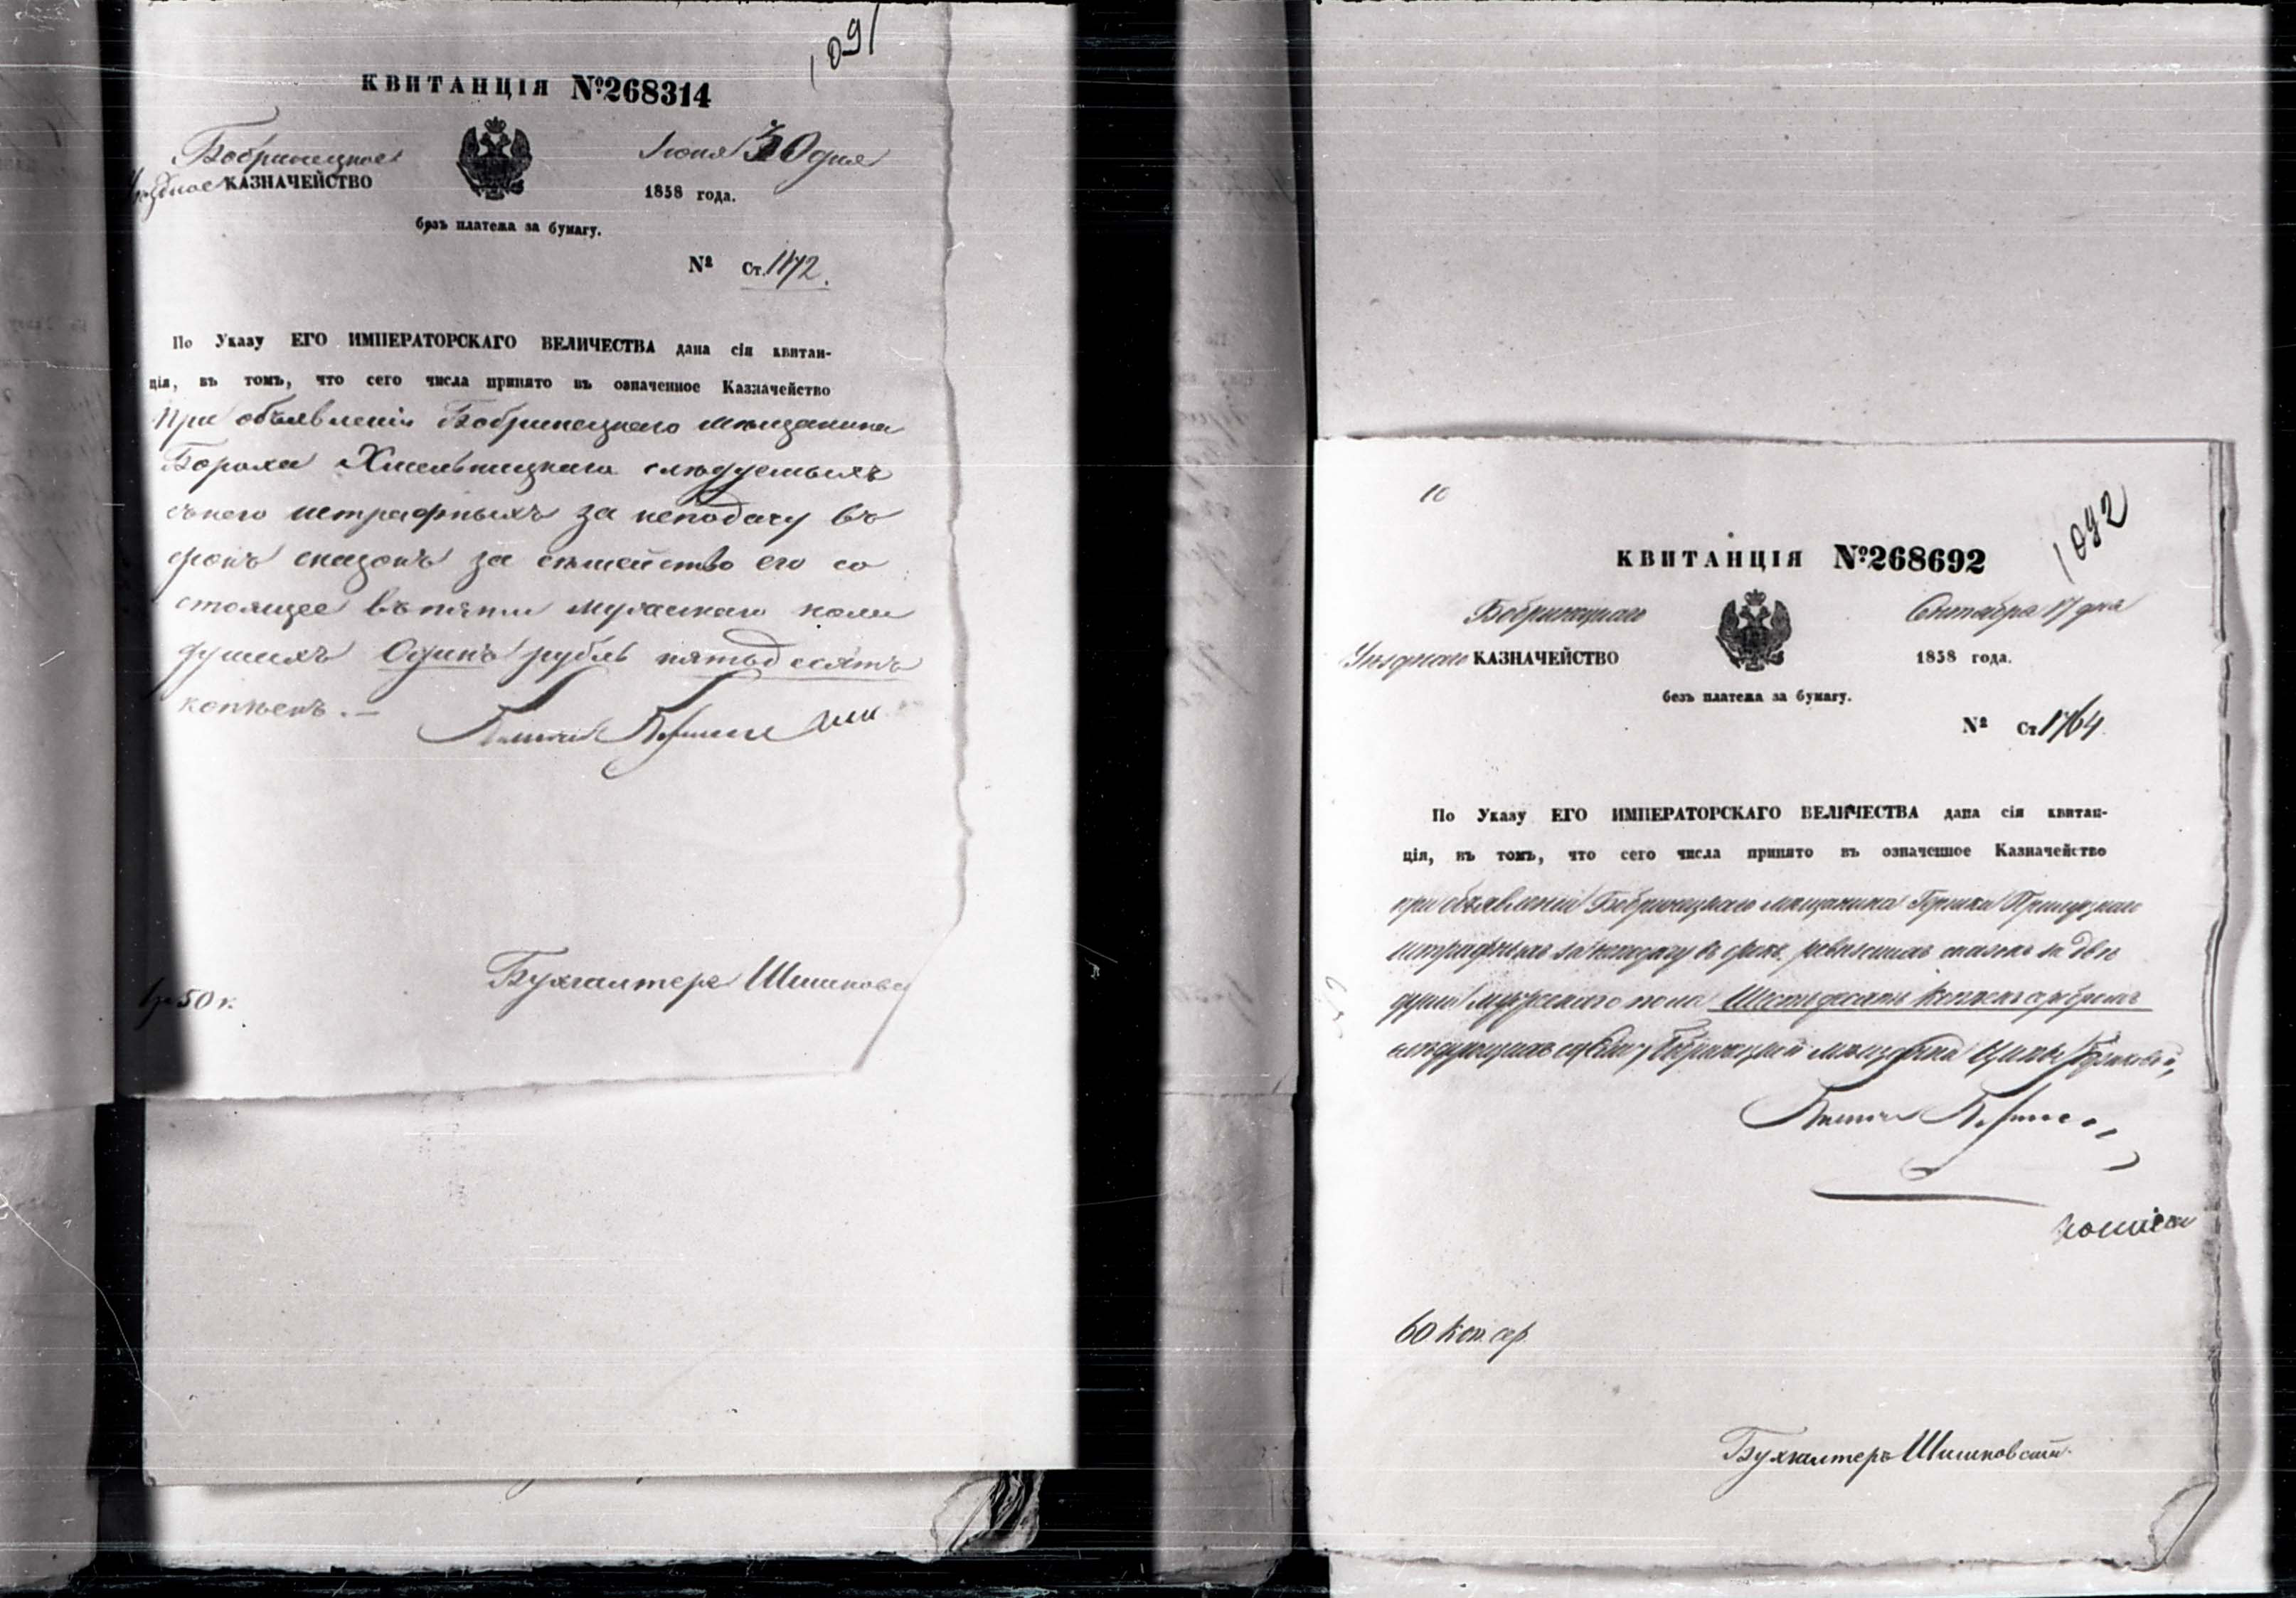 1091
КВИТАНЦІЯ №268314
Бобринецкое
Уѣздное КАЗНАЧЕЙСТВО
Іюня 30 дня
1858 года.
безъ платежа за бумагу.
№ Ст. 1172.
По Указу ЕГО ИМПЕРАТОРСКАГО ВЕЛИЧЕСТВА дана сія квитан-
ція, въ томъ, что сего числа принято въ означенное Казначейство
При объявленіи Бобринецкаго мѣщанина
Бороха Хмельницкаго слѣдуемыхъ
съ него штрафныхъ за неподачу въ
срокъ сказокъ за сѣмейство его со
стоящее въ пяти мужескаго пола
душахъ Одинъ рубль пятьдесятъ
копѣекъ. —
Бухгалтеръ Шишковс
1 р 50 к.
10
1092
КВИТАНЦІЯ №268692
Бобринецкаго
Уѣзднаго КАЗНАЧЕЙСТВО
Сентября 17 дня
1858 года.
безъ платежа за бумагу.
№ Ст 1764.
По Указу ЕГО ИМПЕРАТОРСКАГО ВЕЛИЧЕСТВА дана сія квитан-
ція, въ томъ, что сего числа принято въ означенное Казначейство
при объявленіи Бобринецкаго мѣщанина
штрафныхъ за неподачу въ срокъ ревизскихъ сказокъ за двѣ
души мужескаго пола Шестьдесятъ копѣекъ серебромъ
слѣдующихъ Бобринецкой мѣщанки
60 коп. сер.
Бухгалтеръ Шишковскій